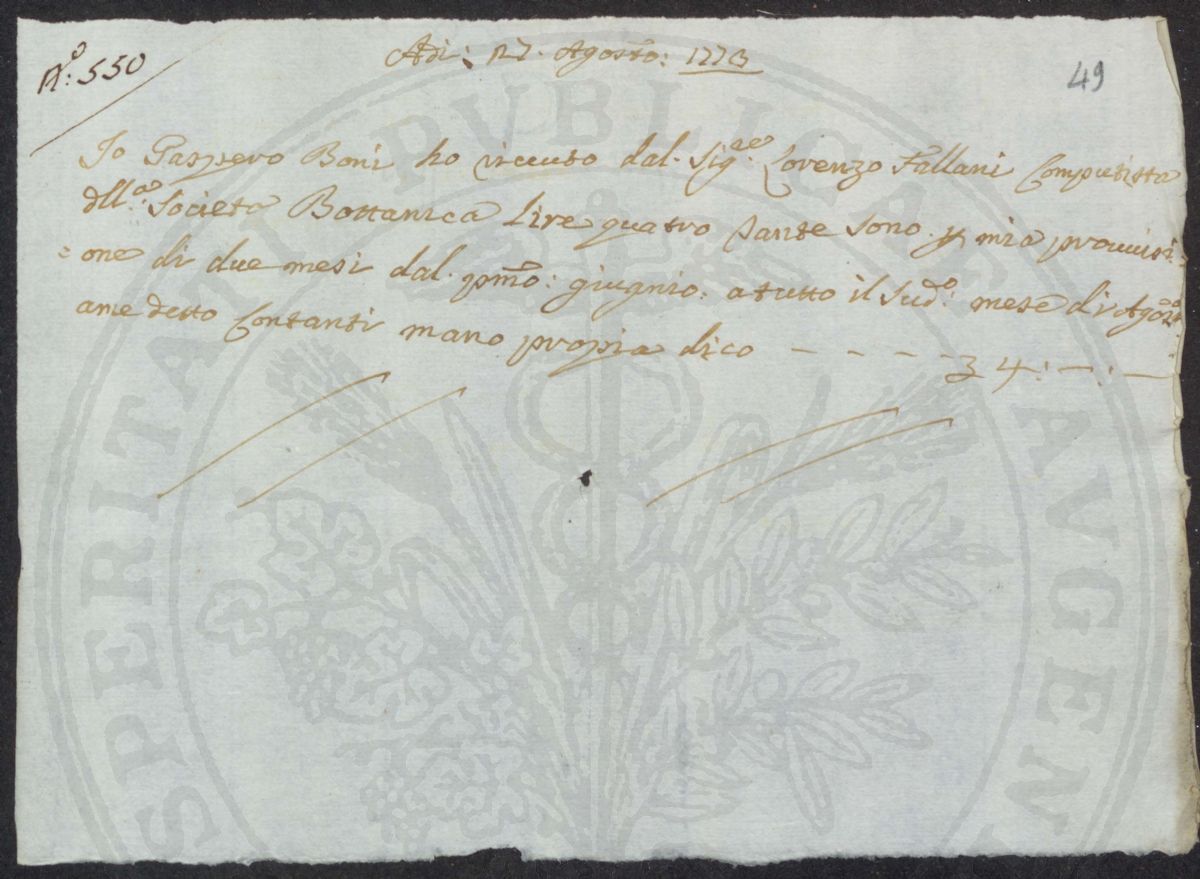 N.º: 550
Adi: 27. Agosto: 1773
49
Io Gaspero Boni ho riceuto dal. Sig.re Lorenzo Fallani Computista
dll.a Società Bottanica Lire quatro tante sono p mia prouuisi
=one di due mesi dal. pmo: giugnio: a tutto il sud.o: mese di Agosto
ame detto Contanti mano propia dico - - - - - 3 4: —: —
SPERITATI PVBLICAE AVGEN